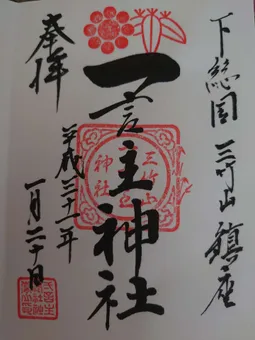 下総国 三竹山 鎮座
奉拝
一言主神社
三竹山
神社
平成三十一年
一月二十日